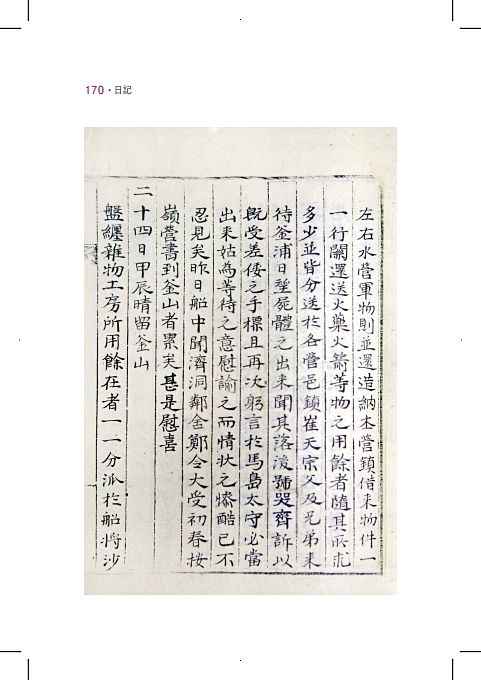 170 • 日記
左右水營軍物則並還造納本營鎮借来物件一
一行關還送火藥火箭等物之用餘者隨其所求
多少並皆分送於各營邑鎮崔天宗父及兄弟来
待釜浦日望屍體之出来聞其落後號哭齊訴以
既受差倭之手標且再次躬言於馬島太守必當
出来姑為等待之意慰諭之而情狀之慘酷已不
忍見矣昨日船中聞濟洞鄰金鄭令大受初春按
嶺營書到釜山者累矣甚是慰喜
二十四日甲辰晴留釜山
盤纏雜物工房所用餘在者一一分派於船將沙